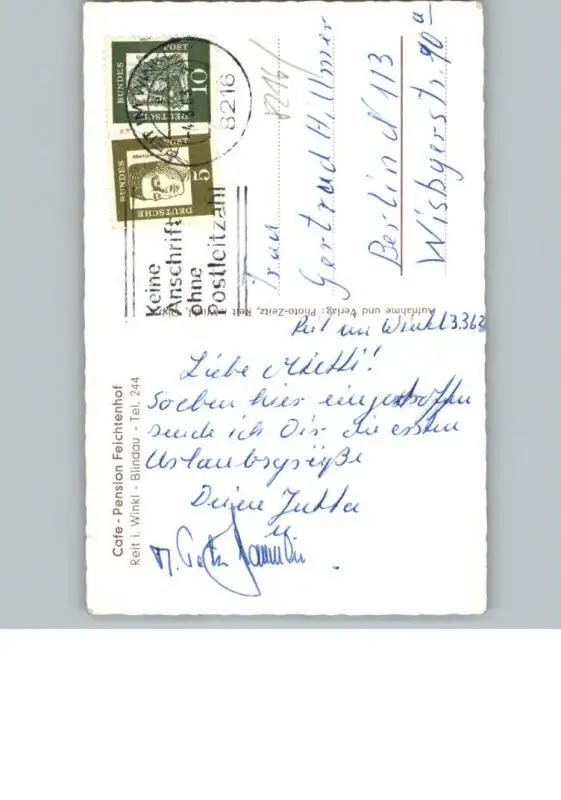 Cafe - Pension Feichtenhof
Reit i. Winkl - Blindau - Tel. 244
Reit im Winkl 3.3.63
Liebe Mutti!
Soeben hier eingetroffen
sende ich Dir die ersten
Urlaubsgrüße
Deine Jutta
Aufnahme und Verlag: Photo-Zeitz, Reit i. Winkl,
DEUTSCHE
BUNDES
POST
10
DEUTSCHE
BUNDES
POST
5
8216
Keine
Anschrift
ohne
Postleitzahl
8216
Frau
Gertrud Hillmer
Berlin N 113
Wisbyerstr. 90a